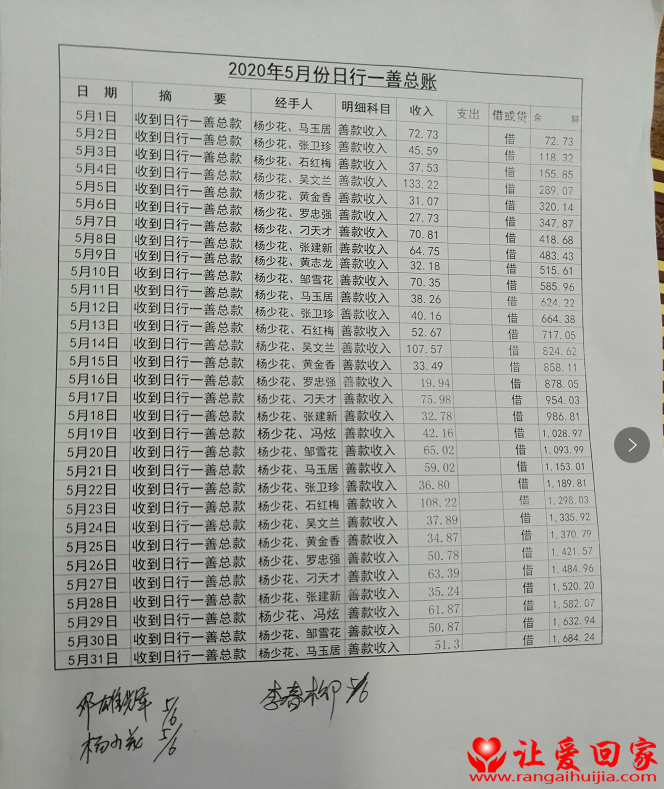 2020年5月份日行一善总账
日 期 摘 要 经手人 明细科目 收入 支出 借或贷 余 额
5月1日 收到日行一善总款 杨少花、马玉居 善款收入 72.73 借 72.73
5月2日 收到日行一善总款 杨少花、张卫珍 善款收入 45.59 借 118.32
5月3日 收到日行一善总款 杨少花、石红梅 善款收入 37.53 借 155.85
5月4日 收到日行一善总款 杨少花、吴文兰 善款收入 133.22 借 289.07
5月5日 收到日行一善总款 杨少花、黄金香 善款收入 31.07 借 320.14
5月6日 收到日行一善总款 杨少花、罗忠强 善款收入 27.73 借 347.87
5月7日 收到日行一善总款 杨少花、刁天才 善款收入 70.81 借 418.68
5月8日 收到日行一善总款 杨少花、张建新 善款收入 64.75 借 483.43
5月9日 收到日行一善总款 杨少花、黄志龙 善款收入 32.18 借 515.61
5月10日 收到日行一善总款 杨少花、邹雪花 善款收入 70.35 借 585.96
5月11日 收到日行一善总款 杨少花、马玉居 善款收入 38.26 借 624.22
5月12日 收到日行一善总款 杨少花、张卫珍 善款收入 40.16 借 664.38
5月13日 收到日行一善总款 杨少花、石红梅 善款收入 52.67 借 717.05
5月14日 收到日行一善总款 杨少花、吴文兰 善款收入 107.57 借 824.62
5月15日 收到日行一善总款 杨少花、黄金香 善款收入 33.49 借 858.11
5月16日 收到日行一善总款 杨少花、罗忠强 善款收入 19.94 借 878.05
5月17日 收到日行一善总款 杨少花、刁天才 善款收入 75.98 借 954.03
5月18日 收到日行一善总款 杨少花、张建新 善款收入 32.78 借 986.81
5月19日 收到日行一善总款 杨少花、冯炫 善款收入 42.16 借 1,028.97
5月20日 收到日行一善总款 杨少花、邹雪花 善款收入 65.02 借 1,093.99
5月21日 收到日行一善总款 杨少花、马玉居 善款收入 59.02 借 1,153.01
5月22日 收到日行一善总款 杨少花、张卫珍 善款收入 36.80 借 1,189.81
5月23日 收到日行一善总款 杨少花、石红梅 善款收入 108.22 借 1,298.03
5月24日 收到日行一善总款 杨少花、吴文兰 善款收入 37.89 借 1,335.92
5月25日 收到日行一善总款 杨少花、黄金香 善款收入 34.87 借 1,370.79
5月26日 收到日行一善总款 杨少花、罗忠强 善款收入 50.78 借 1,421.57
5月27日 收到日行一善总款 杨少花、刁天才 善款收入 63.39 借 1,484.96
5月28日 收到日行一善总款 杨少花、张建新 善款收入 35.24 借 1,520.20
5月29日 收到日行一善总款 杨少花、冯炫 善款收入 61.87 借 1,582.07
5月30日 收到日行一善总款 杨少花、邹雪花 善款收入 50.87 借 1,632.94
5月31日 收到日行一善总款 杨少花、马玉居 善款收入 51.3 借 1,684.24
5/6 李春柳 5/6
杨少花 5/6
让爱回家
www.rangaihuijia.com